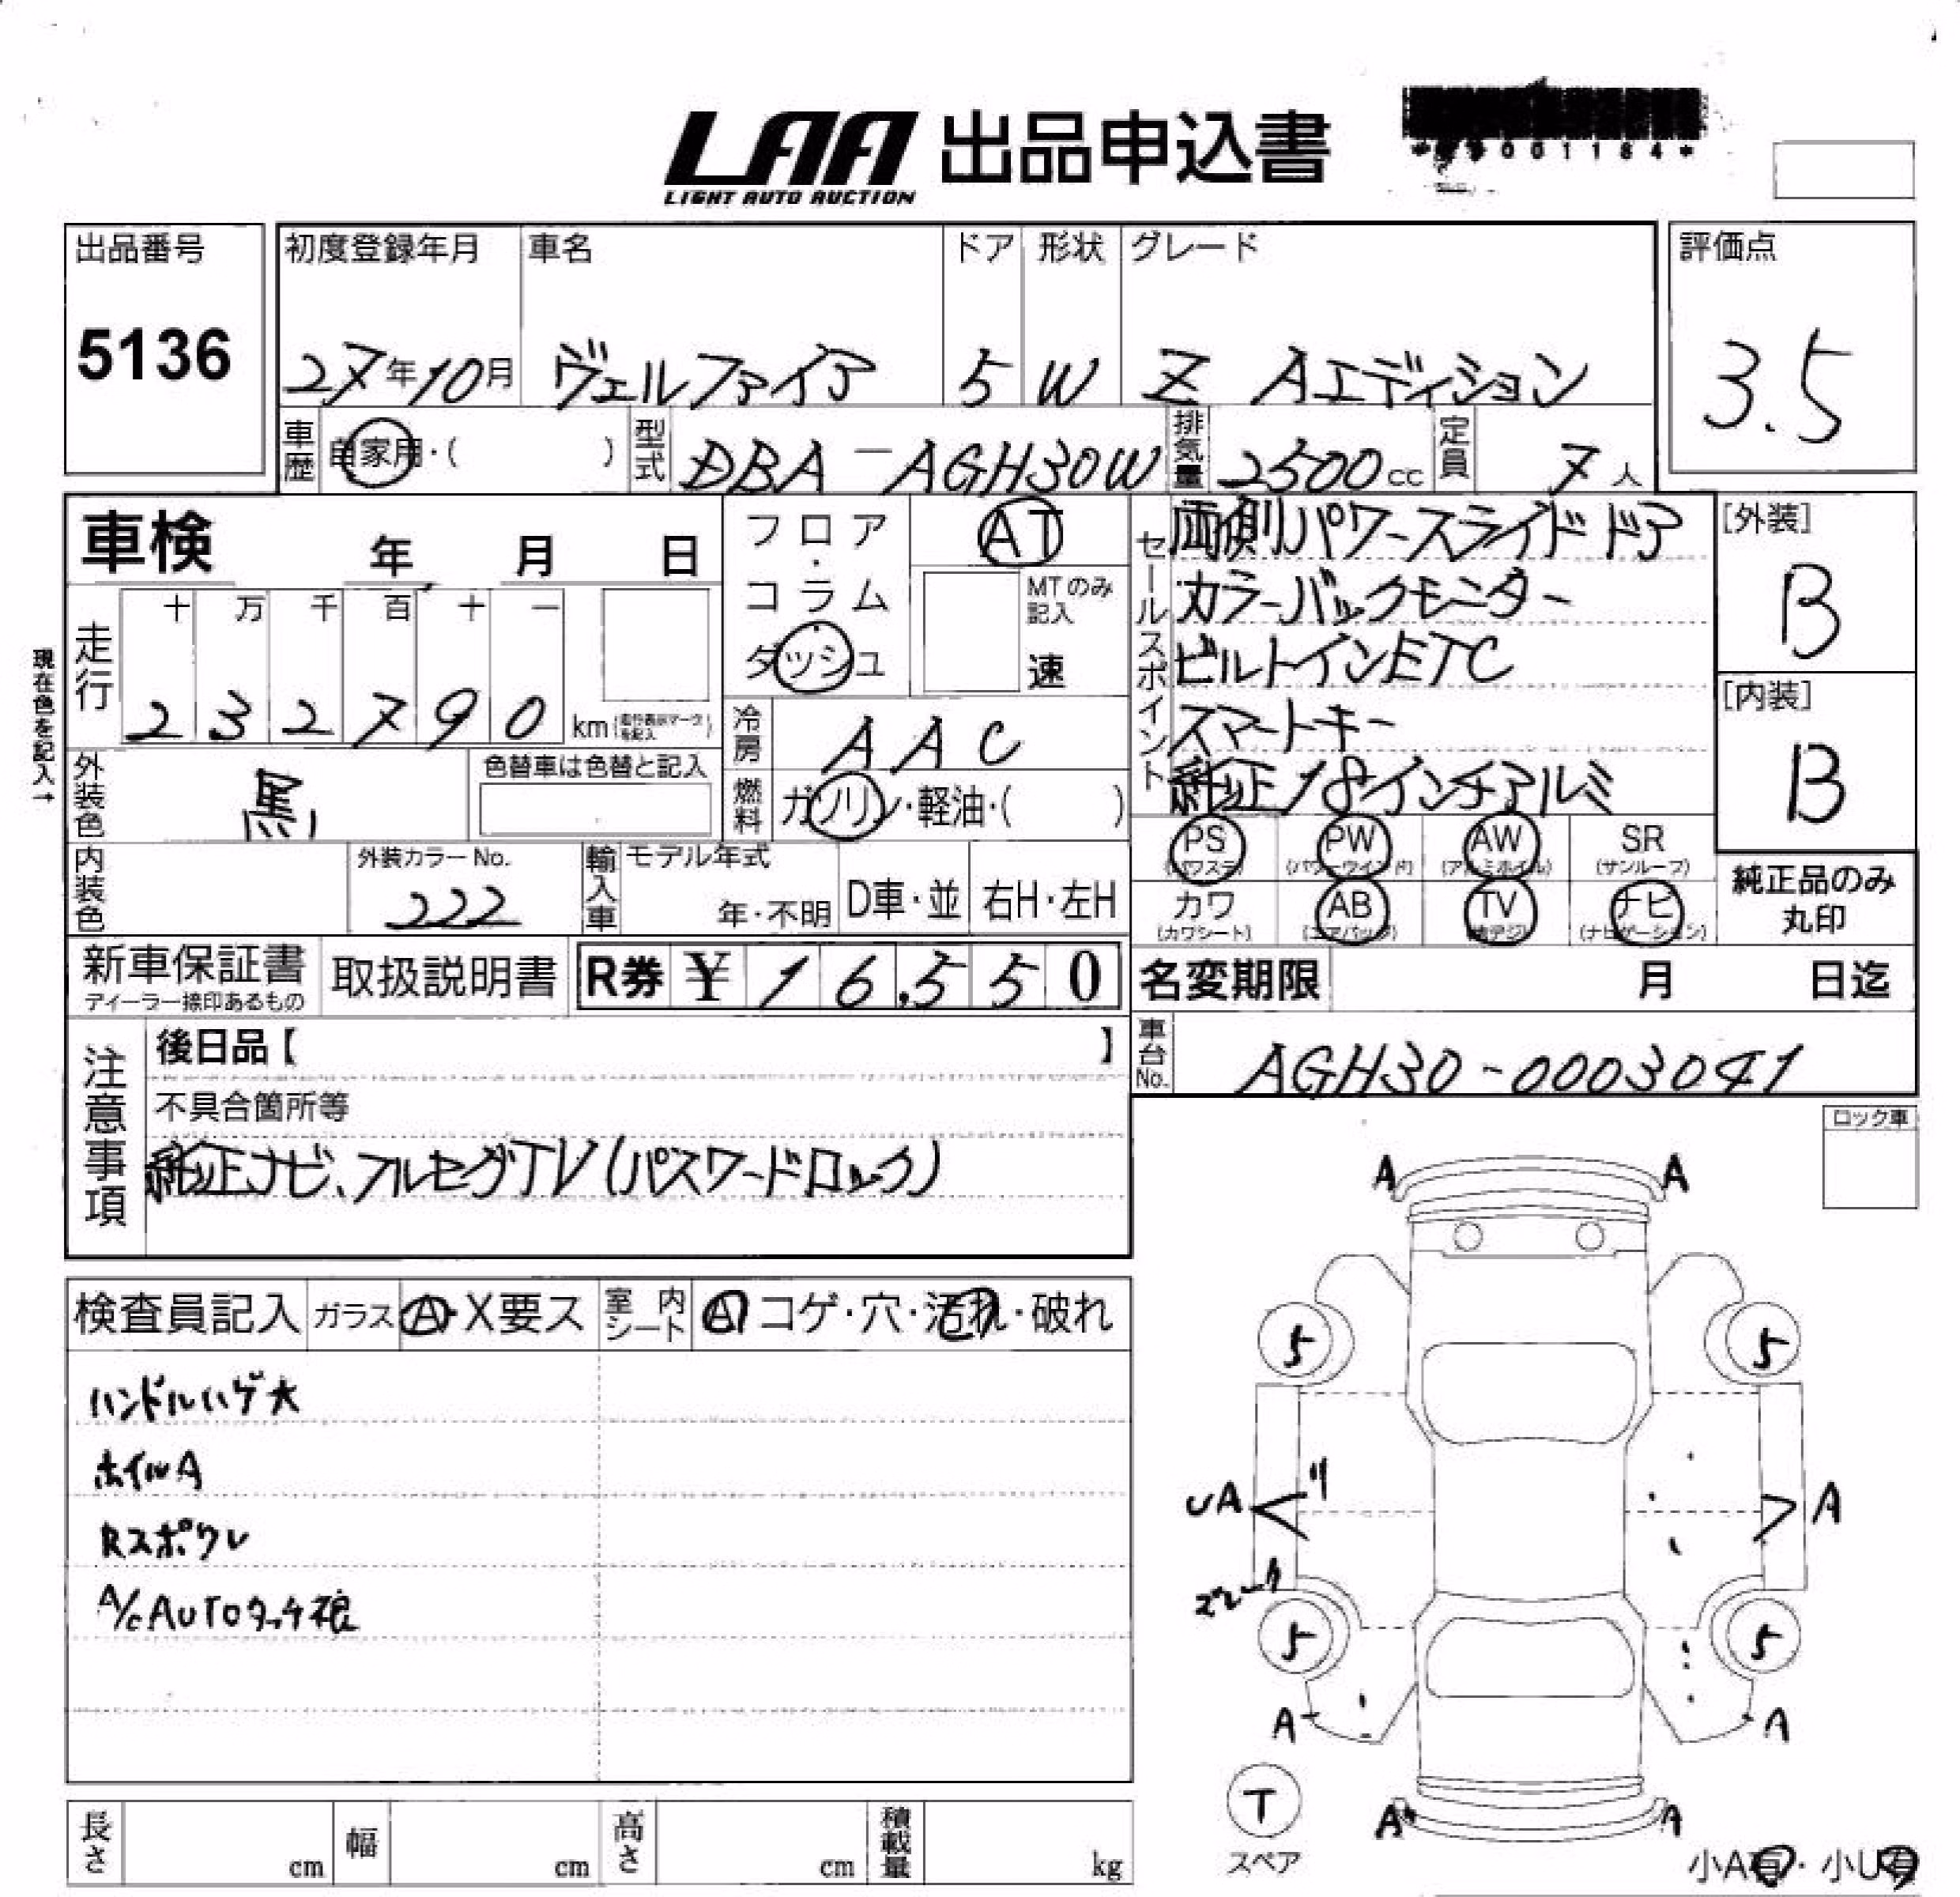 LAA 出品申込書
LIGHT AUTO AUCTION
出品番号
5136
初度登録年月
27年10月
車名
ヴェルファイア
ドア
5
形状
W
グレード
Z Aエディション
評価点
3.5
車歴
自家用・( )
型式
DBA-AGH30W
排気量
2500cc
定員
7人
車検 年 月 日
フロア・コラム
ダッシュ
AT
MTのみ記入
速
セールスポイント
両側パワースライドドア
カラーバックモニター
ビルトインETC
スマートキー
純正18インチアルミ
[外装]
B
[内装]
B
現在色を記入→
走行
十 万 千 百 十 一
2 3 2 7 9 0 km
冷房
AAC
外装色
黒
色替車は色替と記入
燃料
ガソリン・軽油・( )
内装色
外装カラーNo.
222
輸入車
モデル年式
年・不明
D車・並
右H・左H
PS
(パワステ)
PW
(パワーウインド)
AW
(アルミホイル)
SR
(サンルーフ)
カワ
(カワシート)
AB
(エアバッグ)
TV
(地デジ)
ナビ
(ナビゲーション)
純正品のみ
丸印
新車保証書
ディーラー捺印あるもの
取扱説明書
R券 ¥16.550
名変期限 月 日迄
車台No.
AGH30-0003041
注意事項
後日品【 】
不具合箇所等
純正ナビ、フルセグTV(パスワードロック)
ロック車
検査員記入
ガラス
A・X要ス
室内シート
A コゲ・穴・汚れ・破れ
ハンドルハゲ大
ホイルA
Rスポワレ
A/C AUTOタッチ根
A A
5 5
UA A
5 5
A A
T
スペア
A A
小A有・小U有
長さ cm
幅 cm
高さ cm
積載量 kg